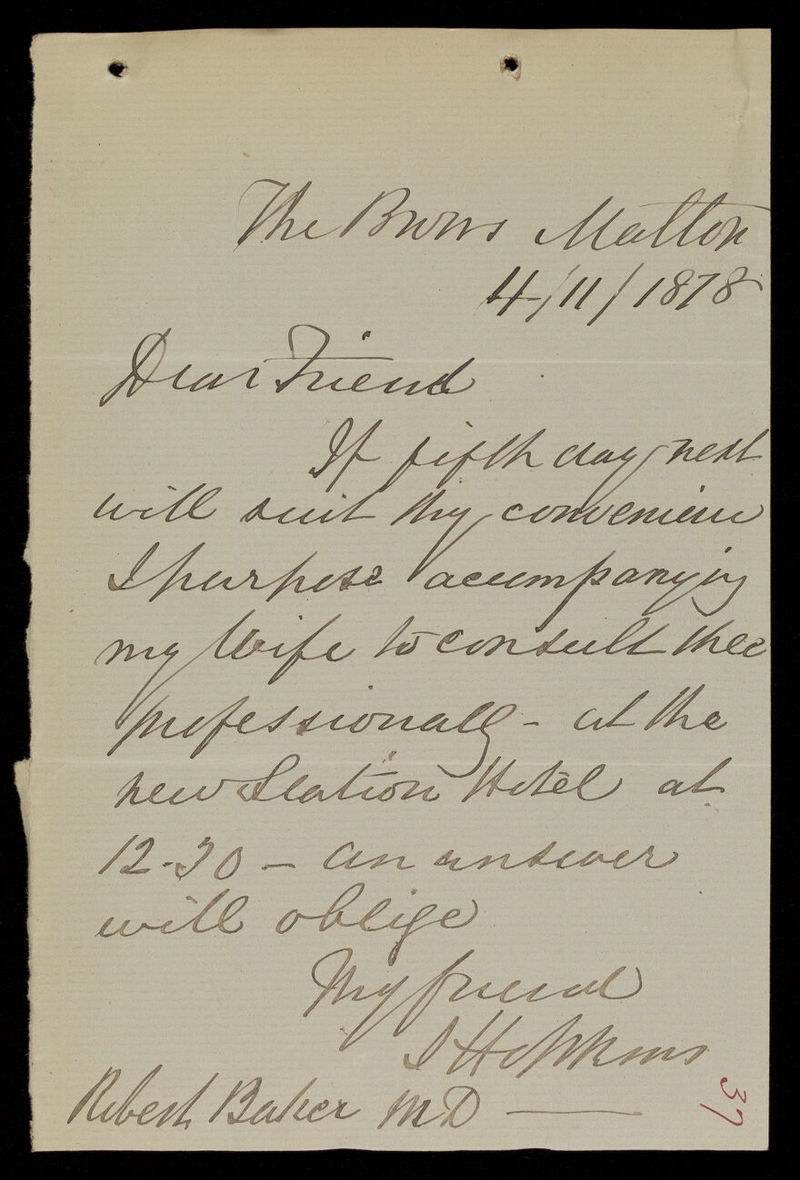 The Brows Malton
4/11/1878
Dear Friend
If fifth day next
will suit thy convenience
I purpose accompanying
my Wife to consult thee
professionally - at the
new Station Hotel at
12-30 - an answer
will oblige
Thy friend
J Hopkins
Robert Baker MD
37